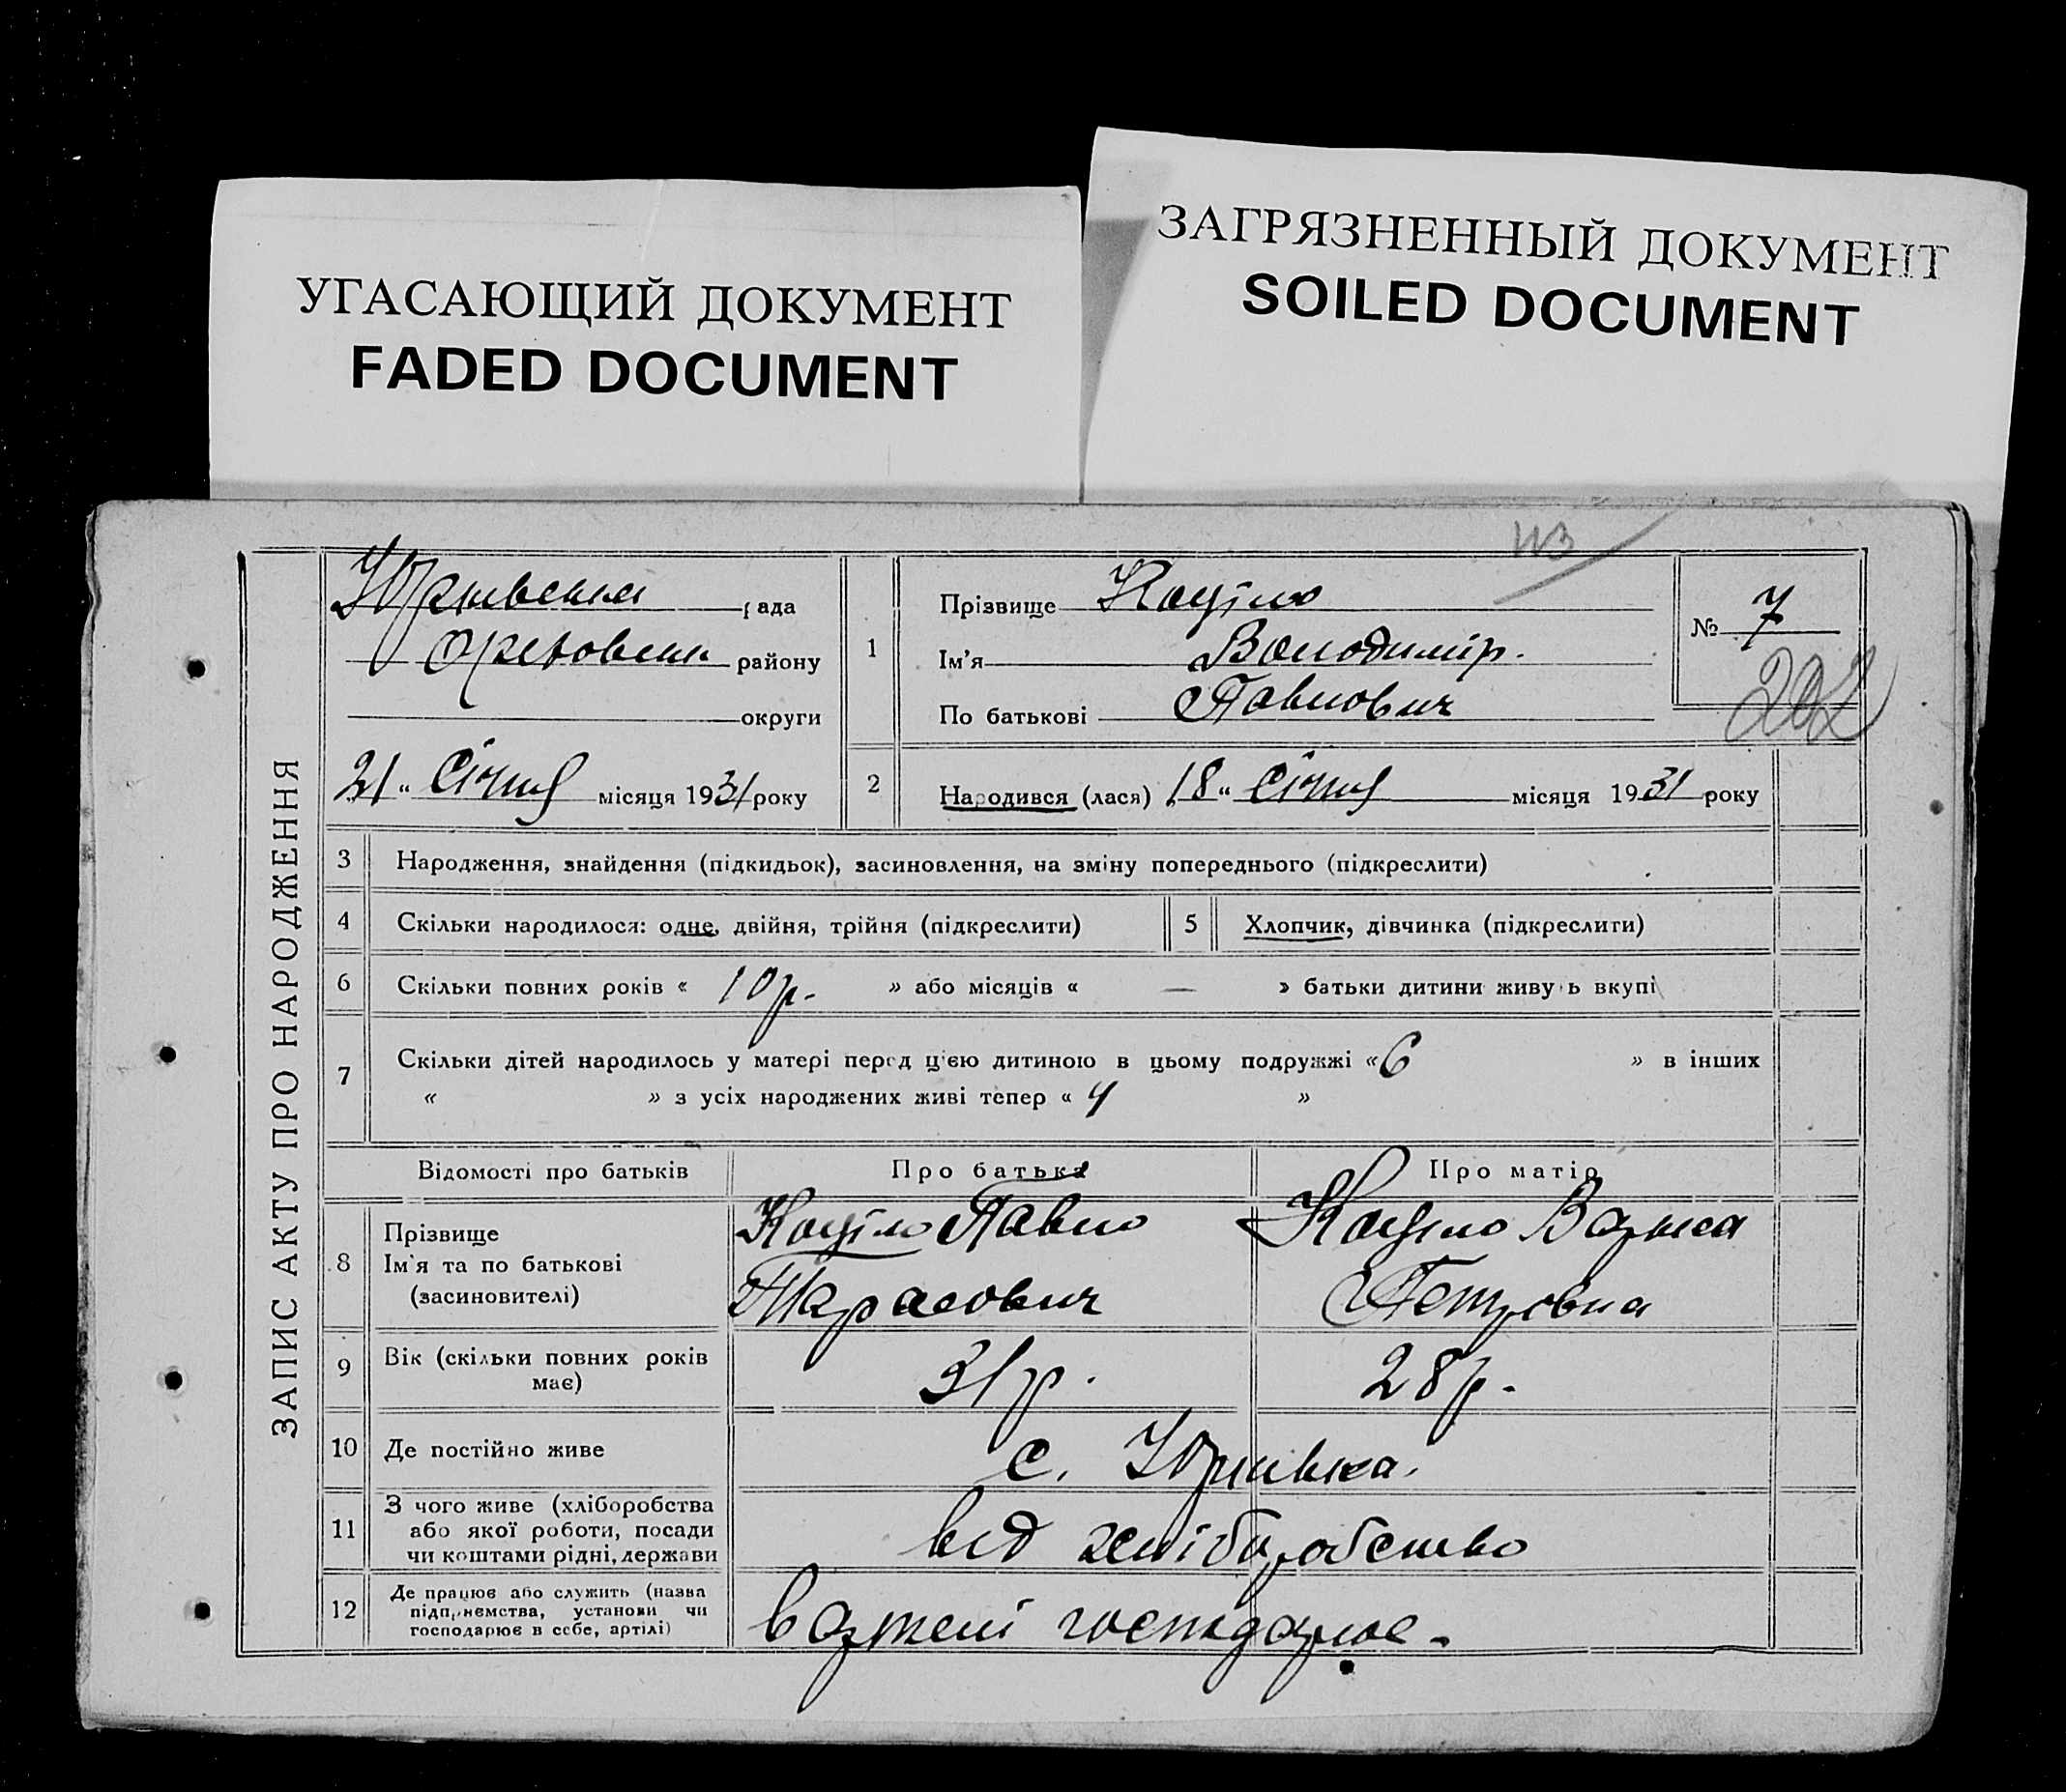 УГАСАЮЩИЙ ДОКУМЕНТ
FADED DOCUMENT
ЗАГРЯЗНЕННЫЙ ДОКУМЕНТ
SOILED DOCUMENT
ЗАПИС АКТУ ПРО НАРОДЖЕННЯ
Юрківська рада
району
округи
21 " Січня місяця 1931 року
1
Прізвище Коціло
Ім'я Володимір.
По батькові Павлович
№ 7
202
2 Народився (лася) 18 " Січня місяця 1931 року
3 Народження, знайдення (підкидьок), засиновлення, на зміну попереднього (підкреслити)
4 Скільки народилося: одне, двійня, трійня (підкреслити) 5 Хлопчик, дівчинка (підкреслити)
6 Скільки повних років « 10 р. » або місяців « — » батьки дитини живуть вкупі
7 Скільки дітей народилось у матері перед цією дитиною в цьому подружжі « 6 » в інших
« » з усіх народжених живі тепер « 4 »
Відомості про батьків Про батька Про матір
8 Прізвище
Ім'я та по батькові
(засиновителі)
Коціло Павло
Тарасович
Коціло Варка
Петровна
9 Вік (скільки повних років
має)
31 р. 28 р.
10 Де постійно живе с. Юрківка.
11 З чого живе (хліборобства
або якої роботи, посади
чи коштами рідні, держави
від хліборобство
12 Де працює або служить (назва
підприємства, установи чи
господарює в себе, артілі)
в артелі господарює.